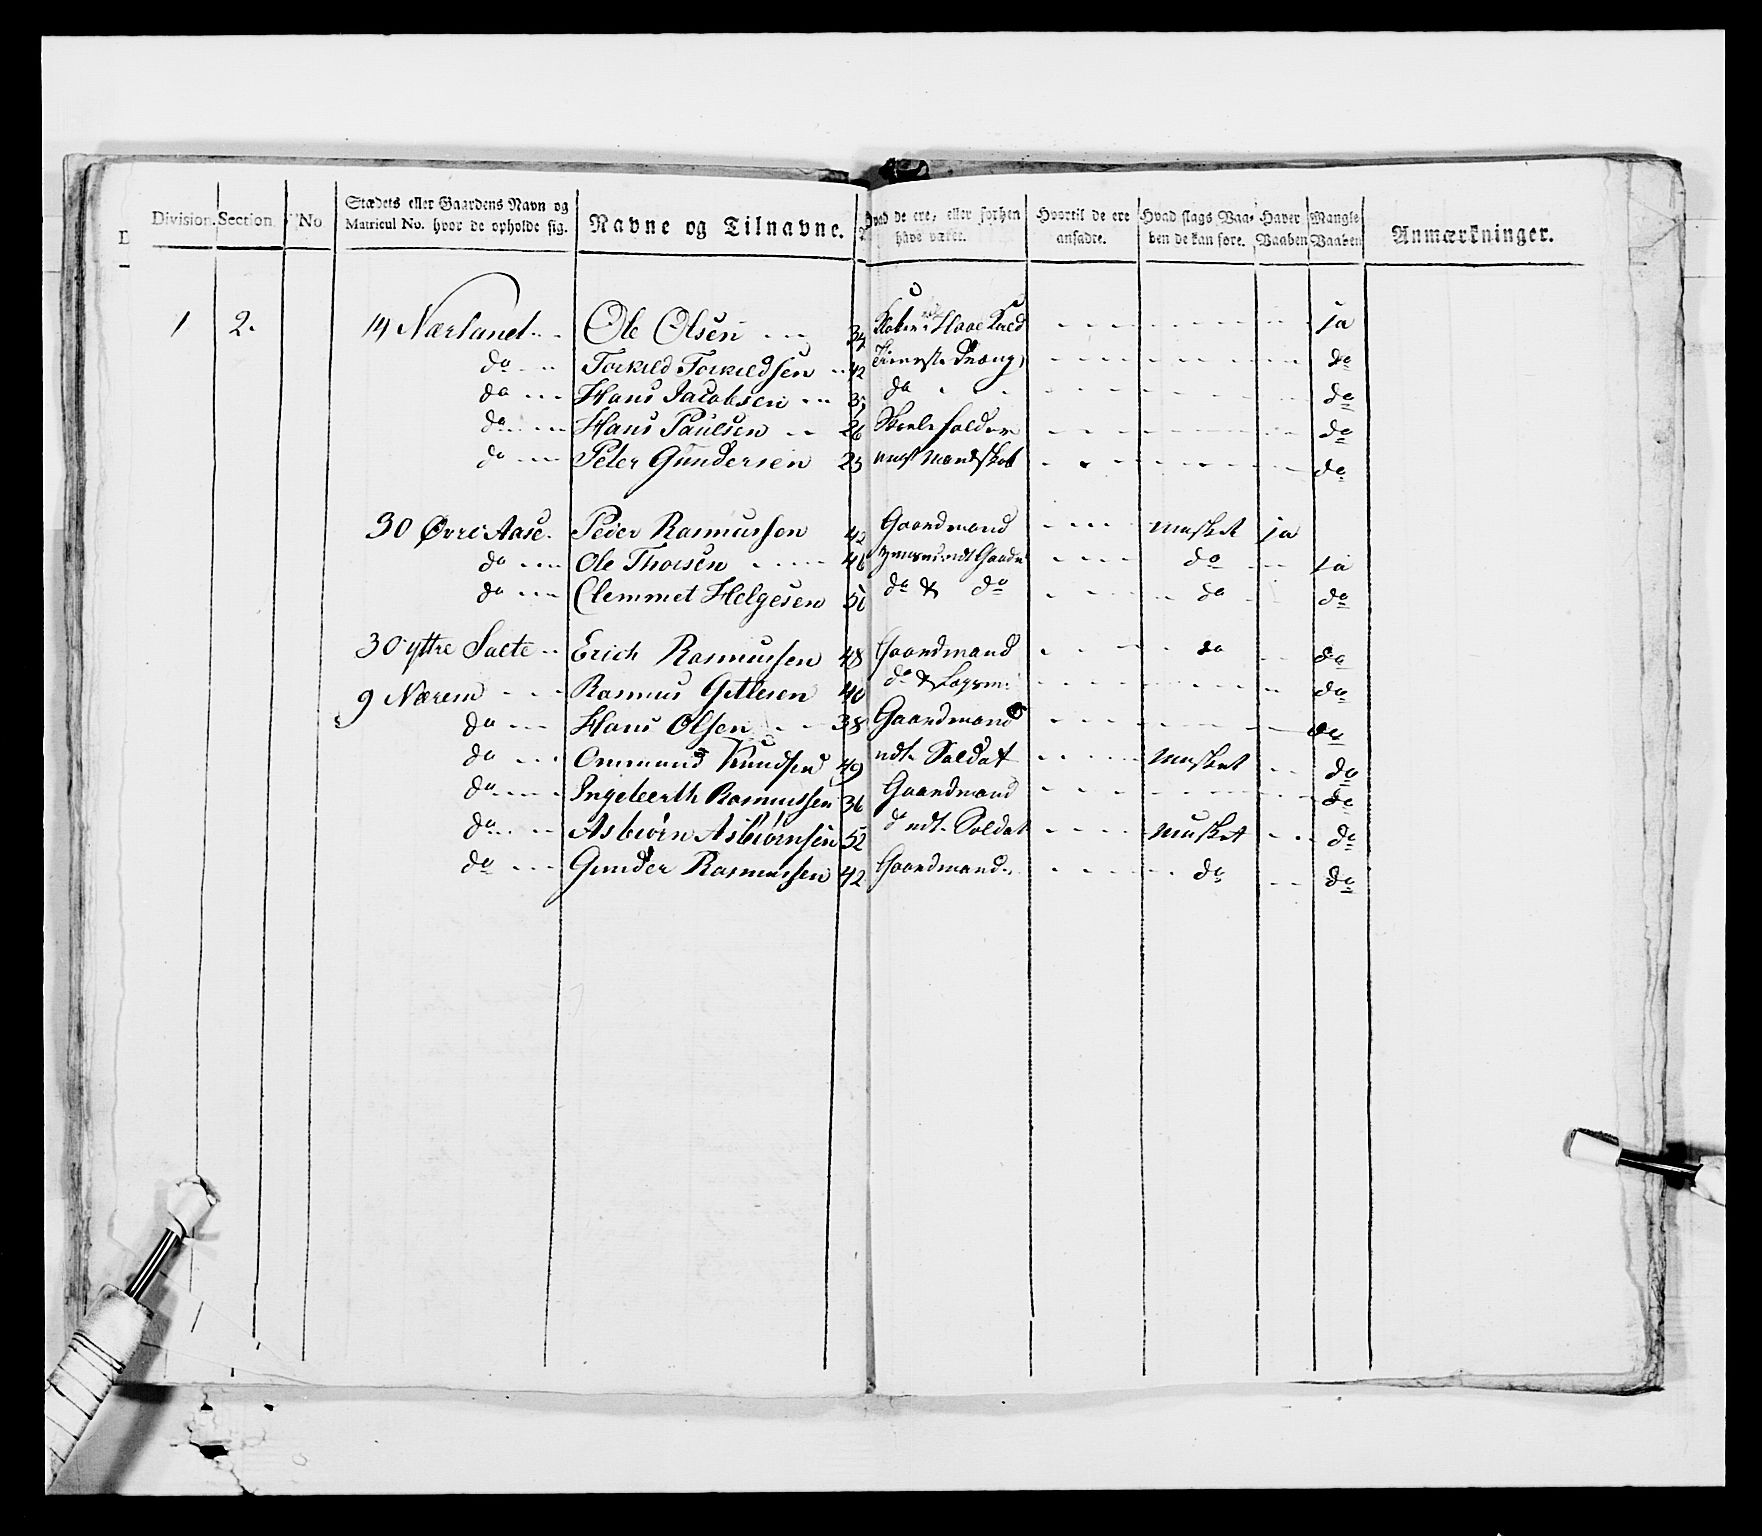 Division. Section. No Stædets eller Gaardens Navn og Matricul No. hvor de opholde sig. Navne og Tilnavne. Hvad de ere, eller forhen have været. Hvortil de ere ansadte. Hvad slags Vaaben de kan føre. Haver Vaaben Mangle Vaaben Anmærkninger.
1 2. 14 Nærland Ole Olsen 34 ja
do Torkild Torkildsen 42 Tieneste Dræng do
do Hans Jacobsen do do
do Hans Paulsen 26 Skoleholder do
do Peter Gundersen 23 do
30 Øvre Aase Peder Rasmussen 42 Gaardmand Musket ja
do Ole Thorsen 46 do ja
do Clemmet Helgesen 50 do & do do do
30 yttre Salte Erich Rasmussen 48 Gaardmand do do
9 Nærem Rasmus Gitlesen 40 do & do
do Hans Olsen 38 Gaardmand do
do Ommund Knudsen 49 udt. Soldat Musket do
do Ingebreth Rasmussen 36 Gaardmand do
do Asbiørn Asbiørnsen 52 d udt. Soldat Musket do
do Gunder Rasmussen 42 Gaardmand do do